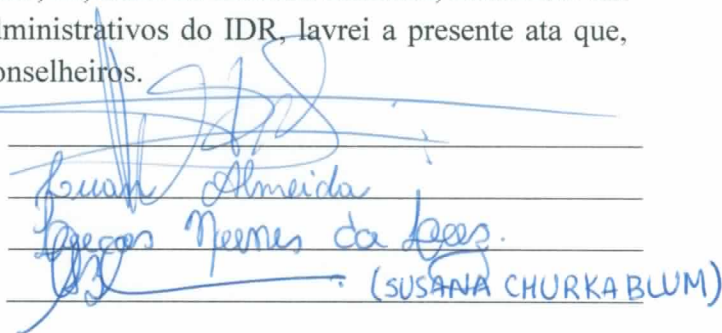 dministrativos do IDR, lavrei a presente ata que,
onselheiros.
Luan Almeida
Nunes da
(SUSANA CHURKA BLUM)